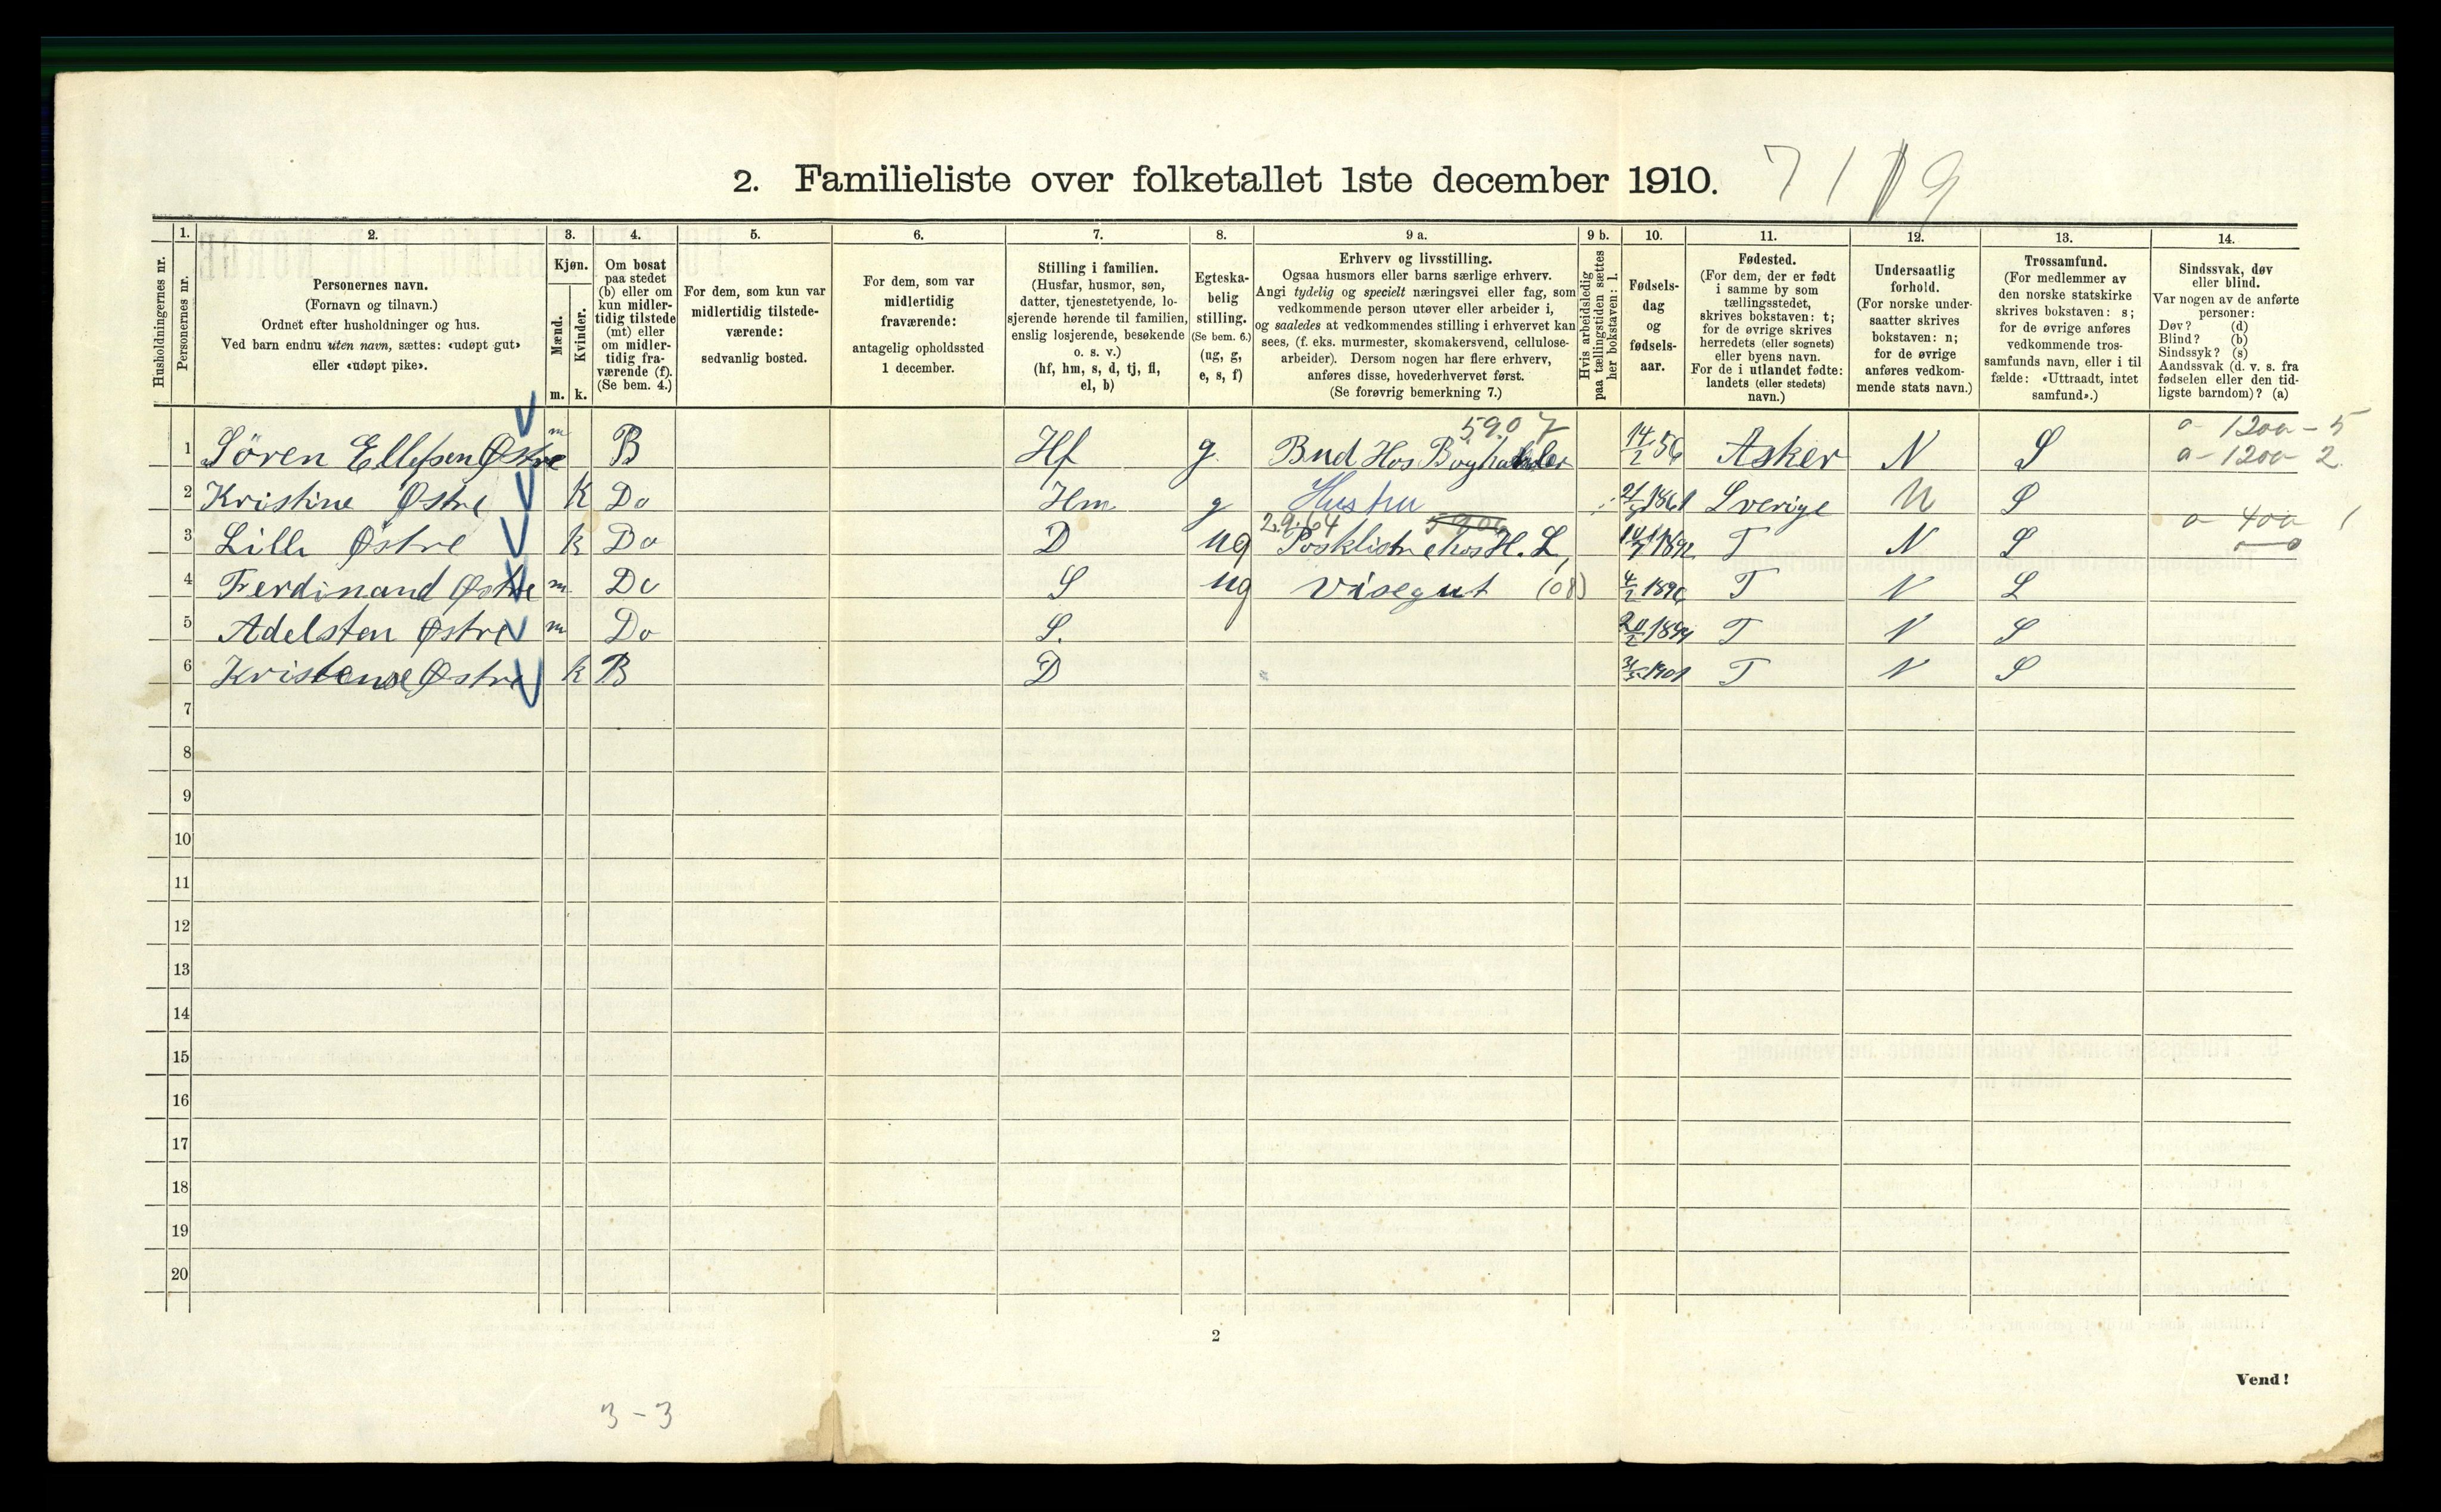 2. Familieliste over folketallet 1ste december 1910.
7119
Husholdningernes nr.
1. Personernes nr.
2. Personernes navn.
(Fornavn og tilnavn.)
Ordnet efter husholdninger og hus.
Ved barn endnu uten navn, sættes: «udøpt gut»
eller «udøpt pike».
3. Kjøn.
Mænd. Kvinder.
m. k.
4. Om bosat
paa stedet
(b) eller om
kun midler-
tidig tilstede
(mt) eller
om midler-
tidig fra-
værende (f).
(Se bem. 4.)
5. For dem, som kun var
midlertidig tilstede-
værende:
sedvanlig bosted.
6. For dem, som var
midlertidig
fraværende:
antagelig opholdssted
1 december.
7. Stilling i familien.
(Husfar, husmor, søn,
datter, tjenestetyende, lo-
sjerende hørende til familien,
enslig losjerende, besøkende
o. s. v.)
(hf, hm, s, d, tj, fl,
el, b)
8. Egteska-
belig
stilling.
(Se bem. 6.)
(ug, g,
e, s, f)
9 a. Erhverv og livsstilling.
Ogsaa husmors eller barns særlige erhverv.
Angi tydelig og specielt næringsvei eller fag, som
vedkommende person utøver eller arbeider i,
og saaledes at vedkommendes stilling i erhvervet kan
sees, (f. eks. murmester, skomakersvend, cellulose-
arbeider). Dersom nogen har flere erhverv,
anføres disse, hovederhvervet først.
(Se forøvrig bemerkning 7.)
9 b. Hvis arbeidsledig
paa tællingstiden sættes
her bokstaven: l.
10. Fødsels-
dag
og
fødsels-
aar.
11. Fødested.
(For dem, der er født
i samme by som
tællingsstedet,
skrives bokstaven: t;
for de øvrige skrives
herredets (eller sognets)
eller byens navn.
For de i utlandet fødte:
landets (eller stedets)
navn.)
12. Undersaatlig
forhold.
(For norske under-
saatter skrives
bokstaven: n;
for de øvrige
anføres vedkom-
mende stats navn.)
13. Trossamfund.
(For medlemmer av
den norske statskirke
skrives bokstaven: s;
for de øvrige anføres
vedkommende tros-
samfunds navn, eller i til
fælde: «Uttraadt, intet
samfund».)
14. Sindssvak, døv
eller blind.
Var nogen av de anførte
personer:
Døv? (d)
Blind? (b)
Sindssyk? (s)
Aandssvak (d. v. s. fra
fødselen eller den tid-
ligste barndom)? (a)
5907 0 - 1200 - 5
1 Sören Ellefsen Østre m B Hf g. Bud Hos Boghandler 14/2 56 Asker N S 0 - 1200 2
2 Kristine Østre K Do Hm g Hustru 1861 Sverige N S
29.64 5906 0 400 1
3 Lilli Østre k Do D ug hos H. L, 1892 T N S
4 Ferdinand Østre m Do S ug Visegut (08) 4/2 1896 T N S
5 Adelsten Østre m Do S. 20/2 T N S
6 Kristense Østre k B D 1901 T N S
7
8
9
10
11
12
13
14
15
16
17
18
19
20
2
Vend!
3-3